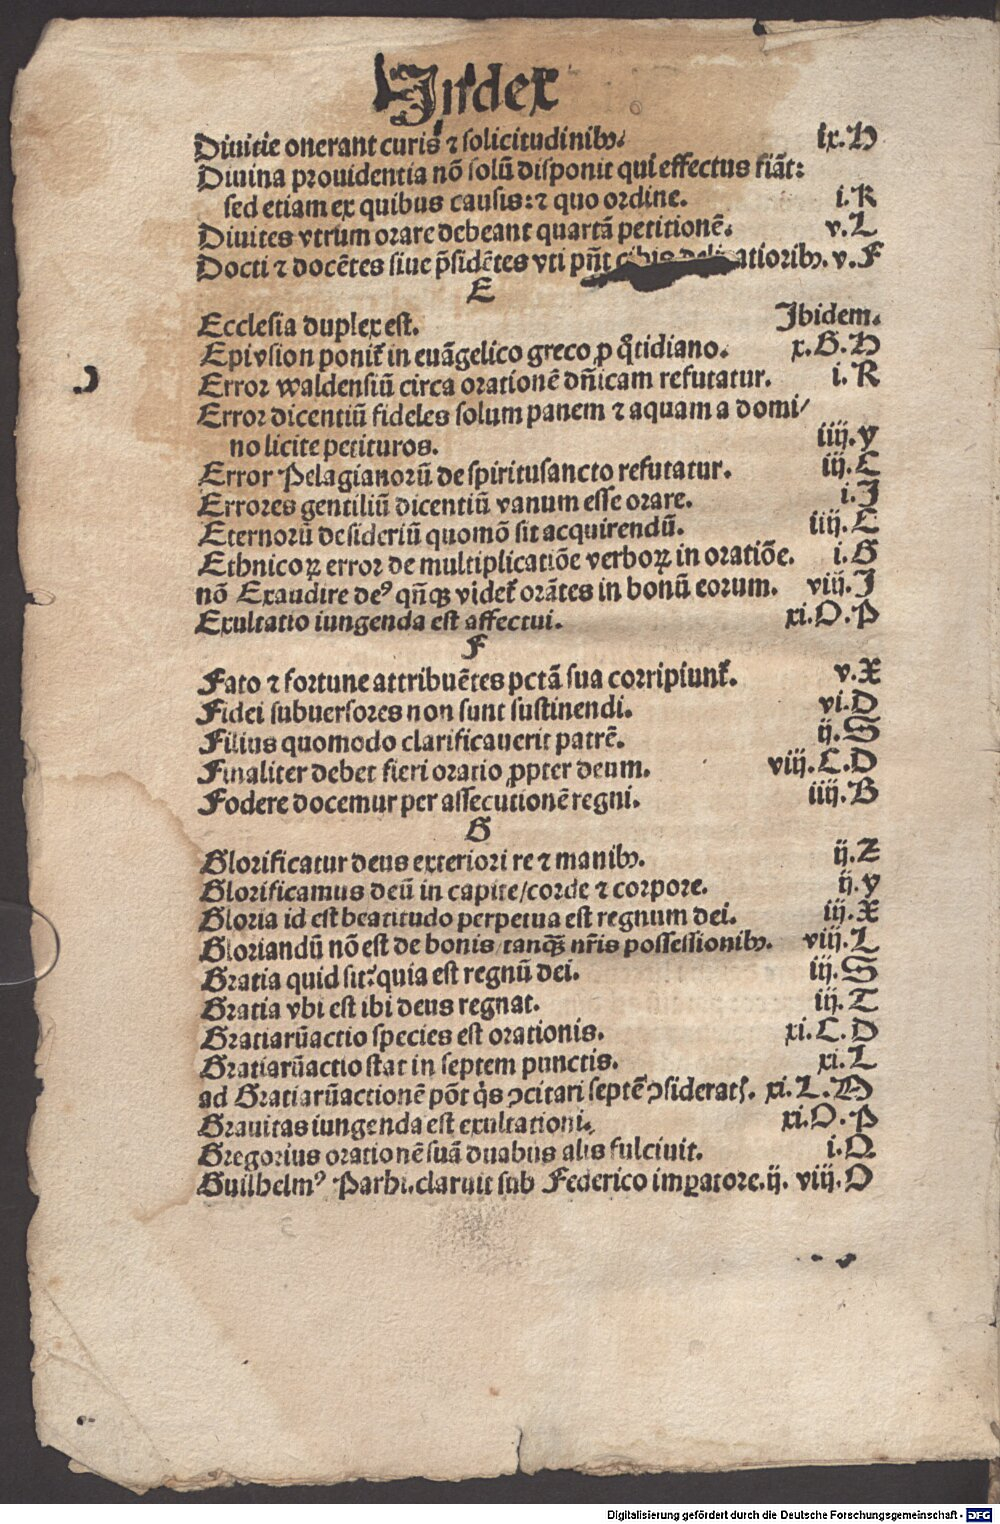 Index
Diuitie onerant curis ⁊ solicitudinibꝰ. ix.H
Diuina prouidentia nō solū disponit qui effectus fiāt:
sed etiam ex quibus causis: ⁊ quo ordine. i.K
Diuites vtrum orare debeant quartā petitionē. v.L
Docti ⁊ docētes siue p̄sidētes vti pn̄t cibis atioribꝰ. v.F
E
Ecclesia duplex est. Ibidem.
Epivsion ponit᷑ in euāgelico greco ꝓ q̊tidiano. x.G.H
Error waldensiū circa orationē dn̄icam refutatur. i.R
Error dicentiū fideles solum panem ⁊ aquam a domi/
no licite petituros. iiij.y
Error Pelagianorū de spiritusancto refutatur. iij.C
Errores gentiliū dicentiū vanum esse orare. i.I
Eternorū desideriū quomō sit acquirendū. iiij.C
Ethnicoꝝ error de multiplicatiōe verboꝝ in oratiōe. i.G
nō Exaudire deꝰ qn̄qꝫ videt᷑ orātes in bonū eorum. viij.I
Exultatio iungenda est affectui. xi.O.P
F
Fato ⁊ fortune attribuētes pctā sua corripiunt᷑. v.X
Fidei subuersores non sunt sustinendi. vi.D
Filius quomodo clarificauerit patrē. ij.S
Finaliter debet fieri oratio ꝓpter deum. viij.C.D
Fodere docemur per assecutionē regni. iiij.B
G
Glorificatur deus exteriori re ⁊ manibꝰ. ij.Z
Glorificamus deū in capite/corde ⁊ corpore. ij.y
Gloria id est beatitudo perpetua est regnum dei. iij.X
Gloriandū nō est de bonis/tanqꝫ nr̄is possessionibꝰ. viij.L
Gratia quid sit: quia est regnū dei. iij.S
Gratia vbi est ibi deus regnat. iij.T
Gratiarūactio species est orationis. xi.C.D
Gratiarūactio stat in septem punctis. xi.L
ad Gratiarūactionē pōt q̇s ꝯcitari septē ꝯsideratꝭ. xi.L.M
Grauitas iungenda est exultationi. xi.O.P
Gregorius orationē suā duabus alis fulciuit. i.Q
Guilhelmꝰ Parhi. claruit sub Federico imꝑatore.ij. viij.O
Digitalisierung gefördert durch die Deutsche Forschungsgemeinschaft - DFG